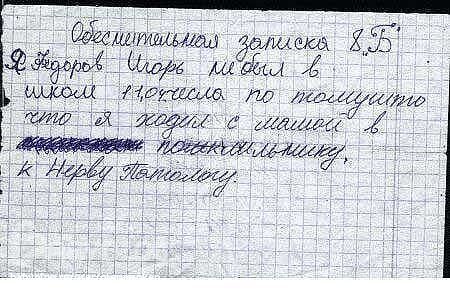 Обеснительная записка 8 „Б“
Я Федоров Игорь не был в
школ 11,04 числа по томушто
что я ходил с мамой в
к Нерву Патологу.